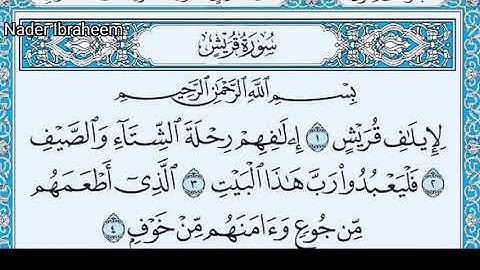 Nader Ibraheem
سُورَةُ قُرَيْشٍ
بِسْمِ ٱللَّهِ ٱلرَّحْمَٰنِ ٱلرَّحِيمِ
لِإِيلَٰفِ قُرَيْشٍ ١ إِۦلَٰفِهِمْ رِحْلَةَ ٱلشِّتَآءِ وَٱلصَّيْفِ
٢ فَلْيَعْبُدُوا۟ رَبَّ هَٰذَا ٱلْبَيْتِ ٣ ٱلَّذِىٓ أَطْعَمَهُم
مِّن جُوعٍ وَءَامَنَهُم مِّنْ خَوْفٍۭ ٤